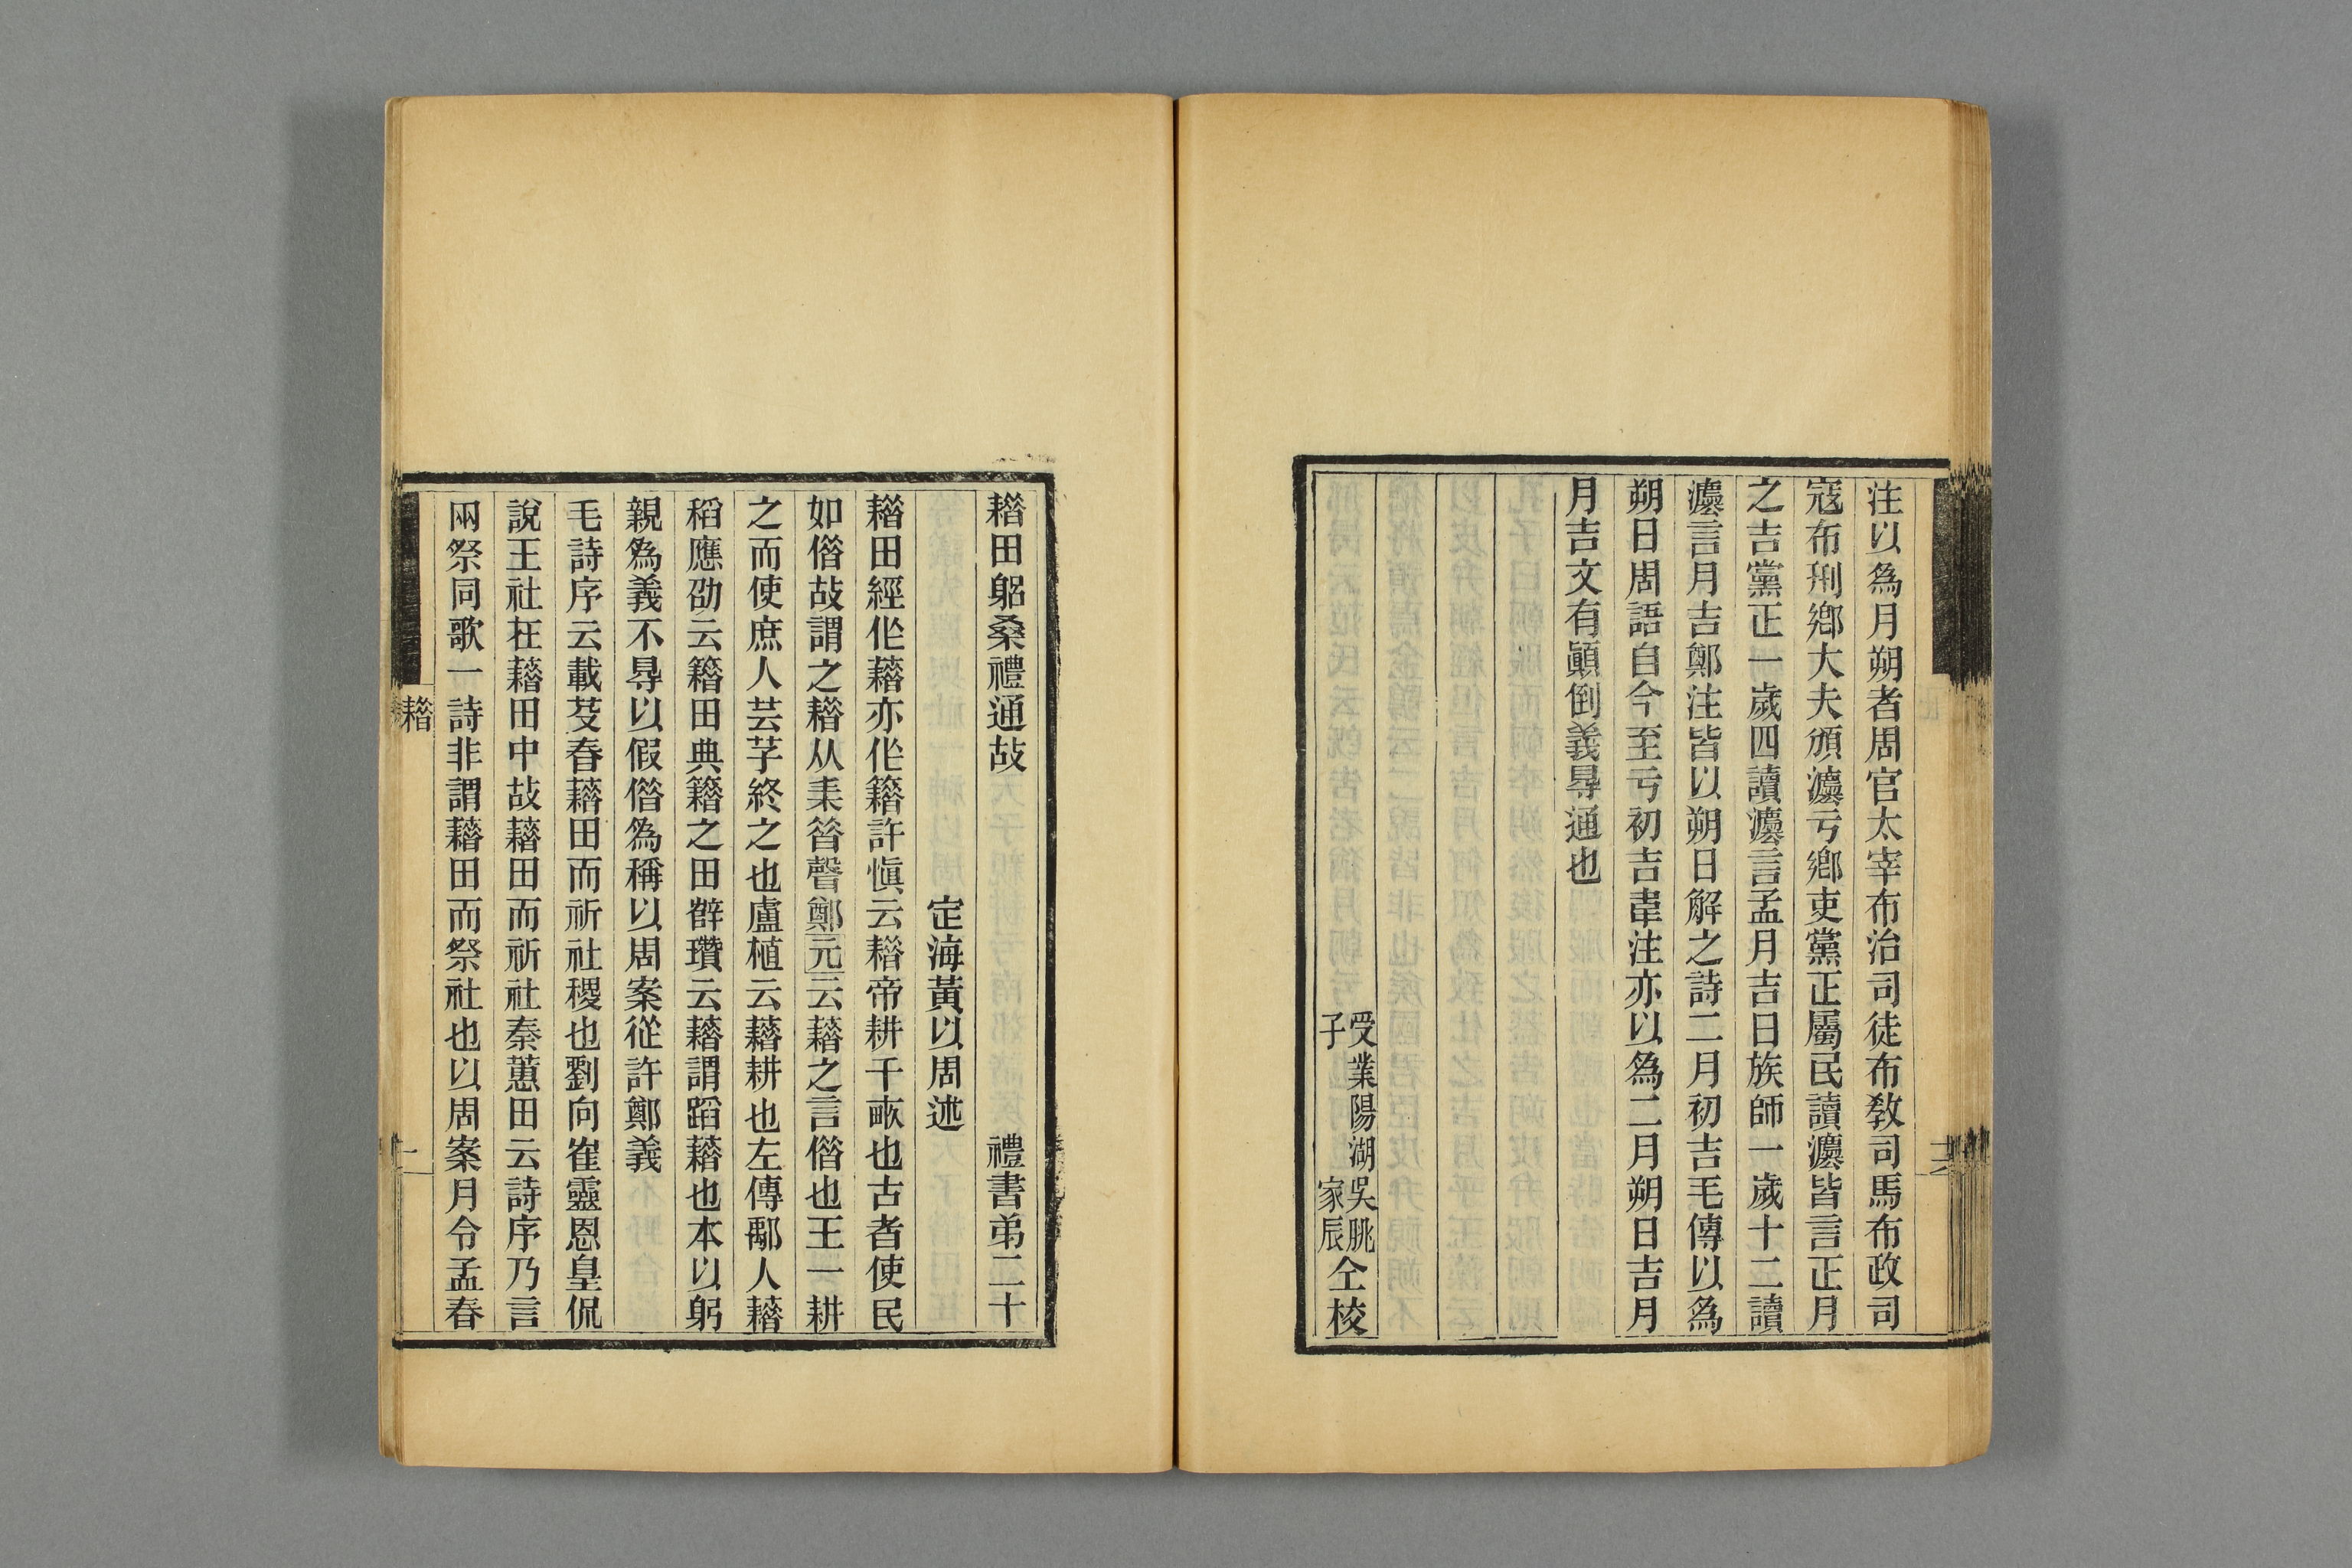 注以爲月朔者周官太宰布治司徒布敎司馬布政司
寇布㓝鄉大夫頒灋亏鄉吏黨正屬民讀灋皆言正月
之吉黨正一歲四讀灋言孟月吉日族師一歲十二讀
灋言月吉鄭注皆以朔日解之詩二月初吉毛傳以爲
朔日周語自今至亏初吉韋注亦以爲二月朔日吉月
月吉文有顚倒義㝵通也
受業陽湖吳朓
子家辰
仝校
耤田躳桑禮通故 禮書弟二十
定海黃以周述
耤田經作藉亦作籍許愼云耤帝耕千畞也古者使民
如借故謂之耤从耒昝聲鄭元云藉之言借也王一耕
之而使庶人芸芓終之也盧植云藉耕也左傳鄅人藉
稻應劭云籍田典籍之田辥瓚云藉謂蹈藉也本以躬
親爲義不㝵以假借爲稱以周案從許鄭義
毛詩序云載芟春藉田而祈社稷也劉向崔靈恩皇侃
說王社在藉田中故藉田而祈社秦蕙田云詩序乃言
兩祭同歌一詩非謂藉田而祭社也以周案月令孟春
耤
一